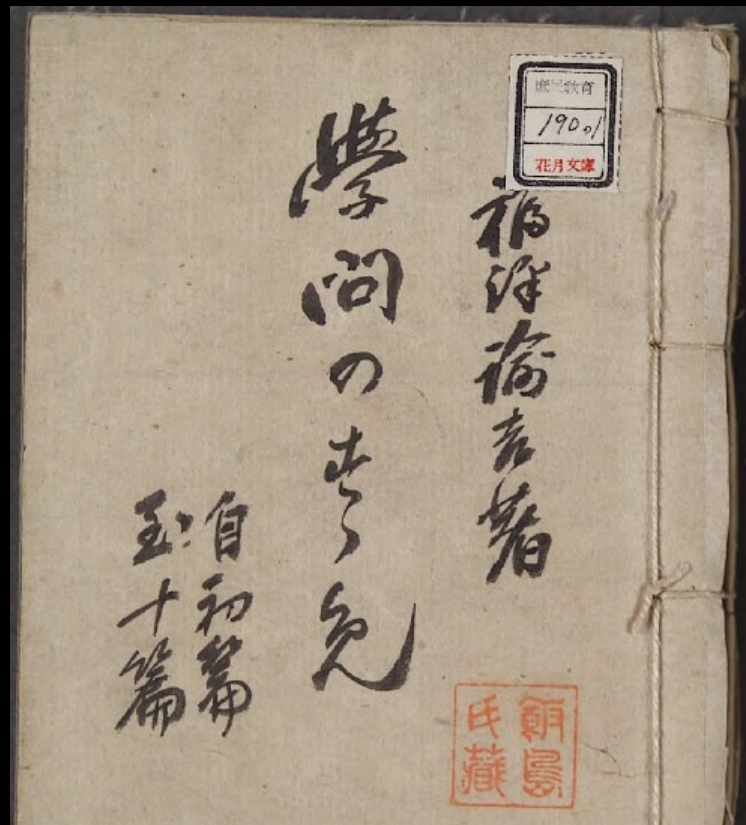 庶民教育
190.1
花月文庫
福澤諭吉著
學問のすゝ免
自初篇
至十篇
飯島
氏藏